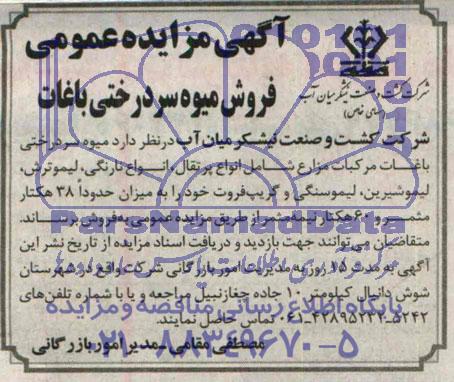 آگهی مزایده عمومی
فروش میوه سردرختی باغات
شرکت کشت و صنعت نیشکر میان آب
(سهامی خاص)
شرکت کشت و صنعت نیشکر میان آب در نظر دارد میوه سردرختی
باغات مرکبات مزارع شامل انواع پرتقال، انواع نارنگی، لیموترش،
لیموشیرین، لیموسنگی و گریپ‌فروت خود را به میزان حدوداً ۳۸ هکتار
مثمر و ۶۰ هکتار نیمه‌مثمر از طریق مزایده عمومی به‌فروش برساند.
متقاضیان می‌توانند جهت بازدید و دریافت اسناد مزایده از تاریخ نشر این
آگهی به مدت ۱۵ روز به مدیریت امور بازرگانی شرکت واقع در شهرستان
شوش دانیال کیلومتر ۱۰ جاده چغازنبیل مراجعه و یا با شماره تلفن‌های
۰۶۱-۴۲۸۹۵۲۳۴-۵۲۴۲ تماس حاصل نمایند.
مصطفی مقامی - مدیر امور بازرگانی
ParsNamadData
پایگاه اطلاع رسانی مناقصه و مزایده
۰۲۱-۸۸۳۴۹۶۷۰-۵